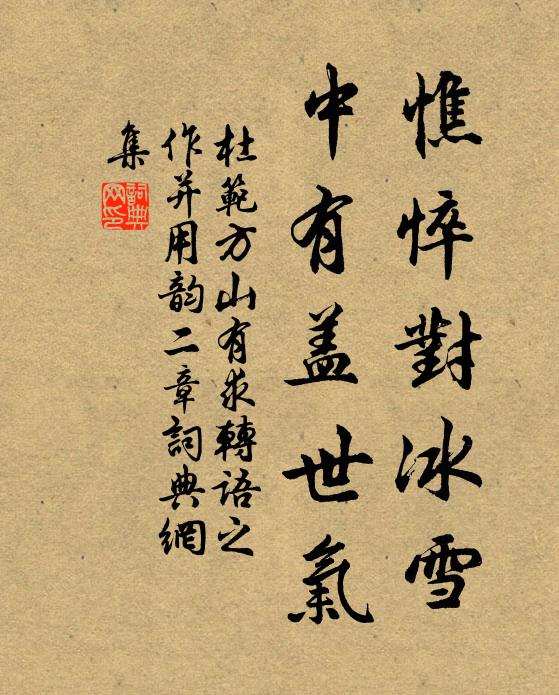 憔悴對冰雪
中有盖世氣
杜範方山有求轉語之
作并用韵二章詞典網
集
詞典
网印